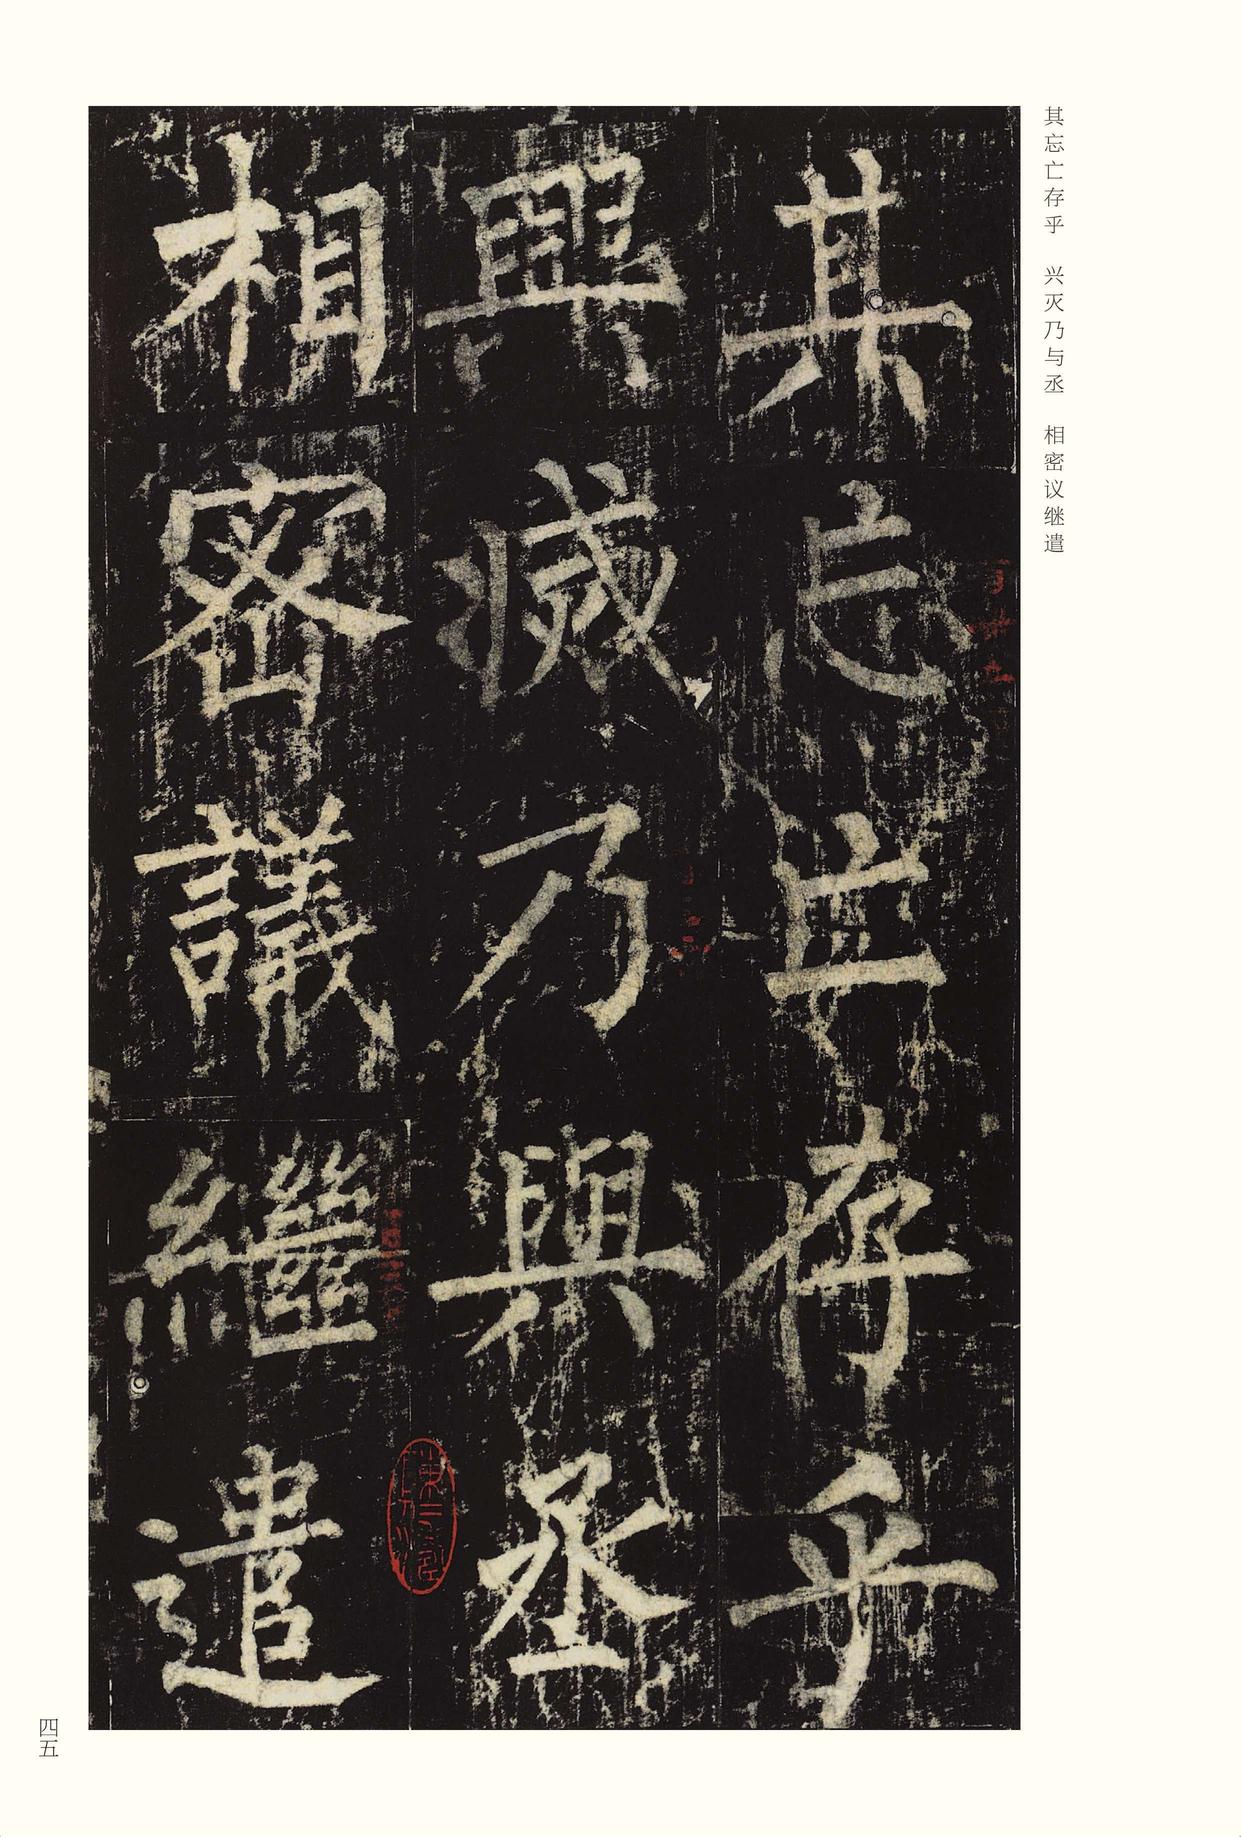 其忘亡存乎　兴灭乃与丞　相密议继遣
其忘亡存乎
興滅乃與丞
相密議繼遣
四五